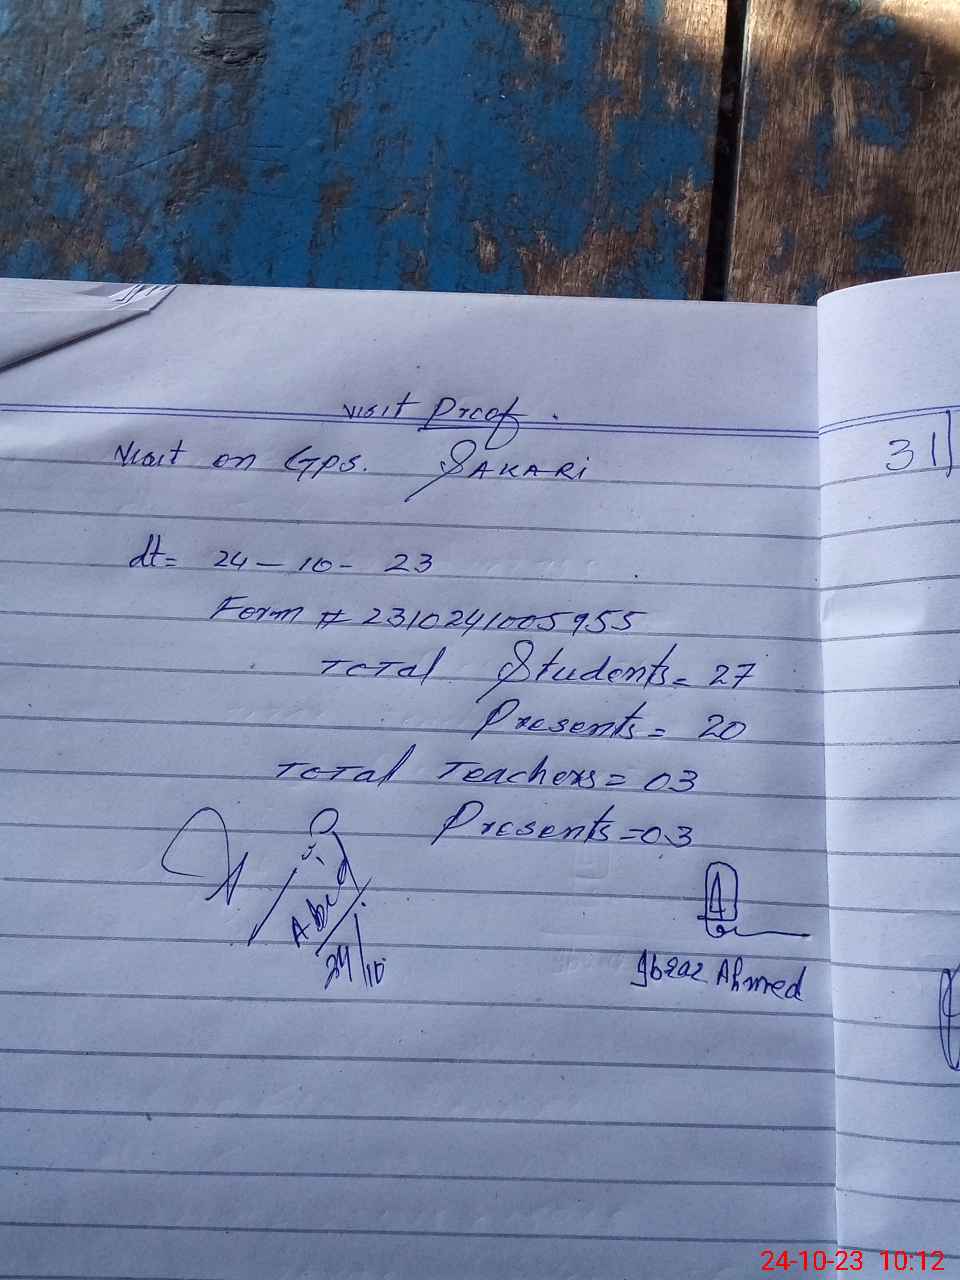 visit Proof.
Visit on Gps. SAKARi
31
dt= 24 - 10 - 23
Form # 2310241005955
Total Students = 27
Presents = 20
Total Teachers = 03
Presents = 03
Abid
24/10
Ahmed
24-10-23 10:12